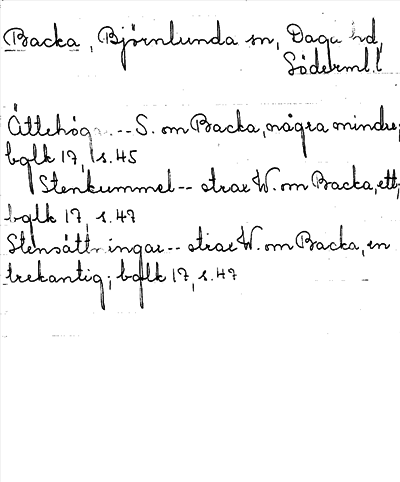 Backa, Björnlunda sn, Daga hd,
Söderml. l
Ättehögar -- S. om Backa, några mindre;
bglk 17, s. 45
Stenkummel -- strax W. om Backa, ett;
bglk 17, s. 47
Stensättningar -- strax W. om Backa, en
trekantig; bglk 17, s. 47